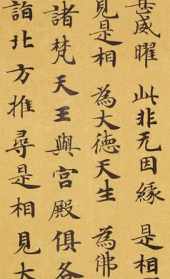 甚威曜 此非无因緣 是相
見是相 為大德天生 為佛
諸梵天王與宮殿俱各
詣北方推尋是相見大